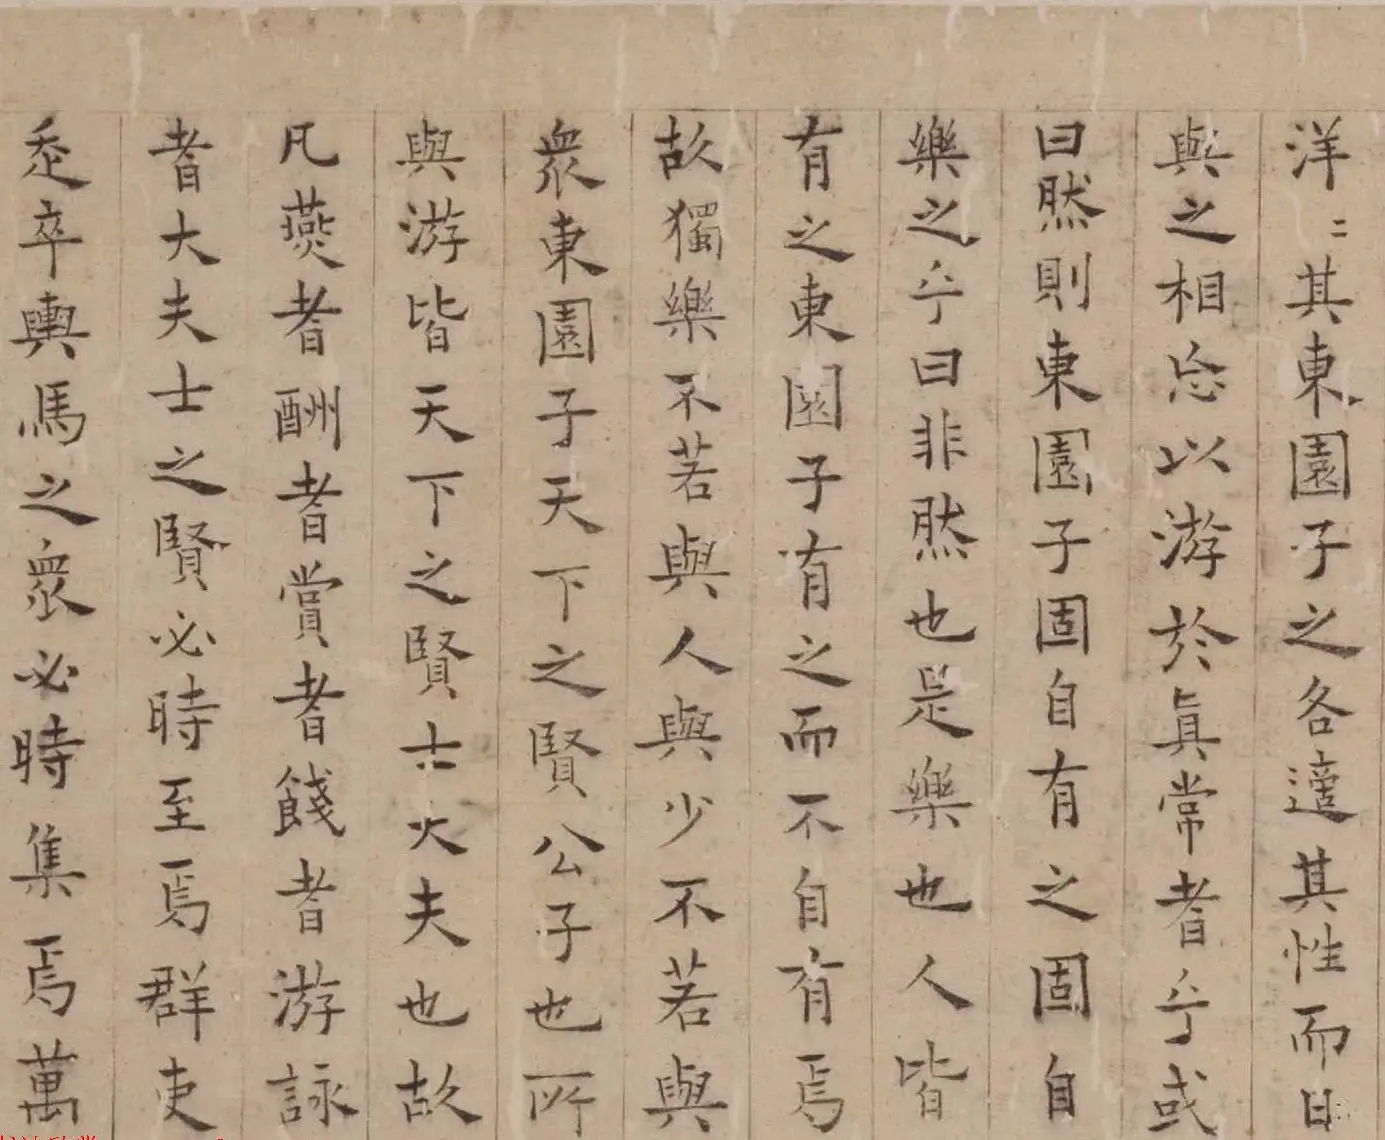 洋〻其東園子之各適其性而日
與之相忘以游於真常者乎或
曰然則東園子固自有之固自
樂之乎曰非然也是樂也人皆
有之東園子有之而不自有焉
故獨樂不若與人與少不若與
眾東園子天下之賢公子也所
與游皆天下之賢士大夫也故
凡燕者酬者賞者餞者游詠
者大夫士之賢必時至焉群吏
走卒輿馬之眾必時集焉萬